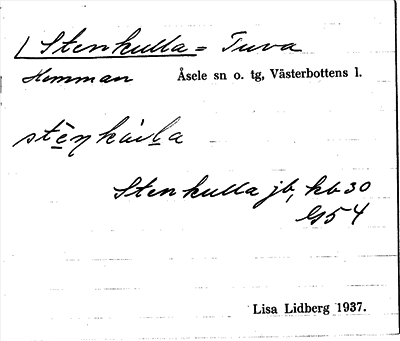 Stenkulla = Tuva
Hemman Åsele sn o. tg, Västerbottens l.
Stenkulla jb, kb 30
G54
Lisa Lidberg 1937.